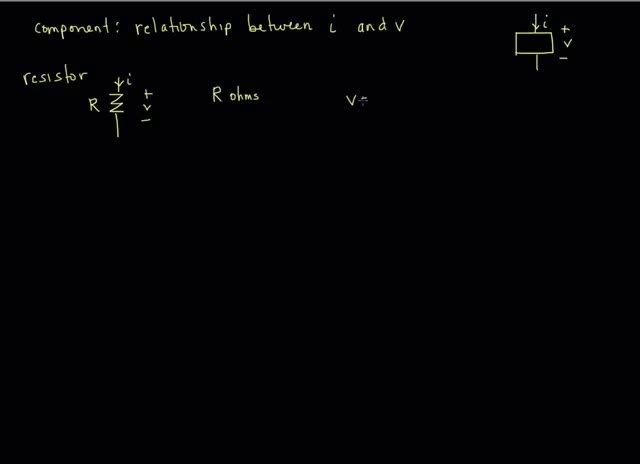 component: relationship between i and v
i
+
v
-
resistor
i
R
+
v
-
R ohms
v=